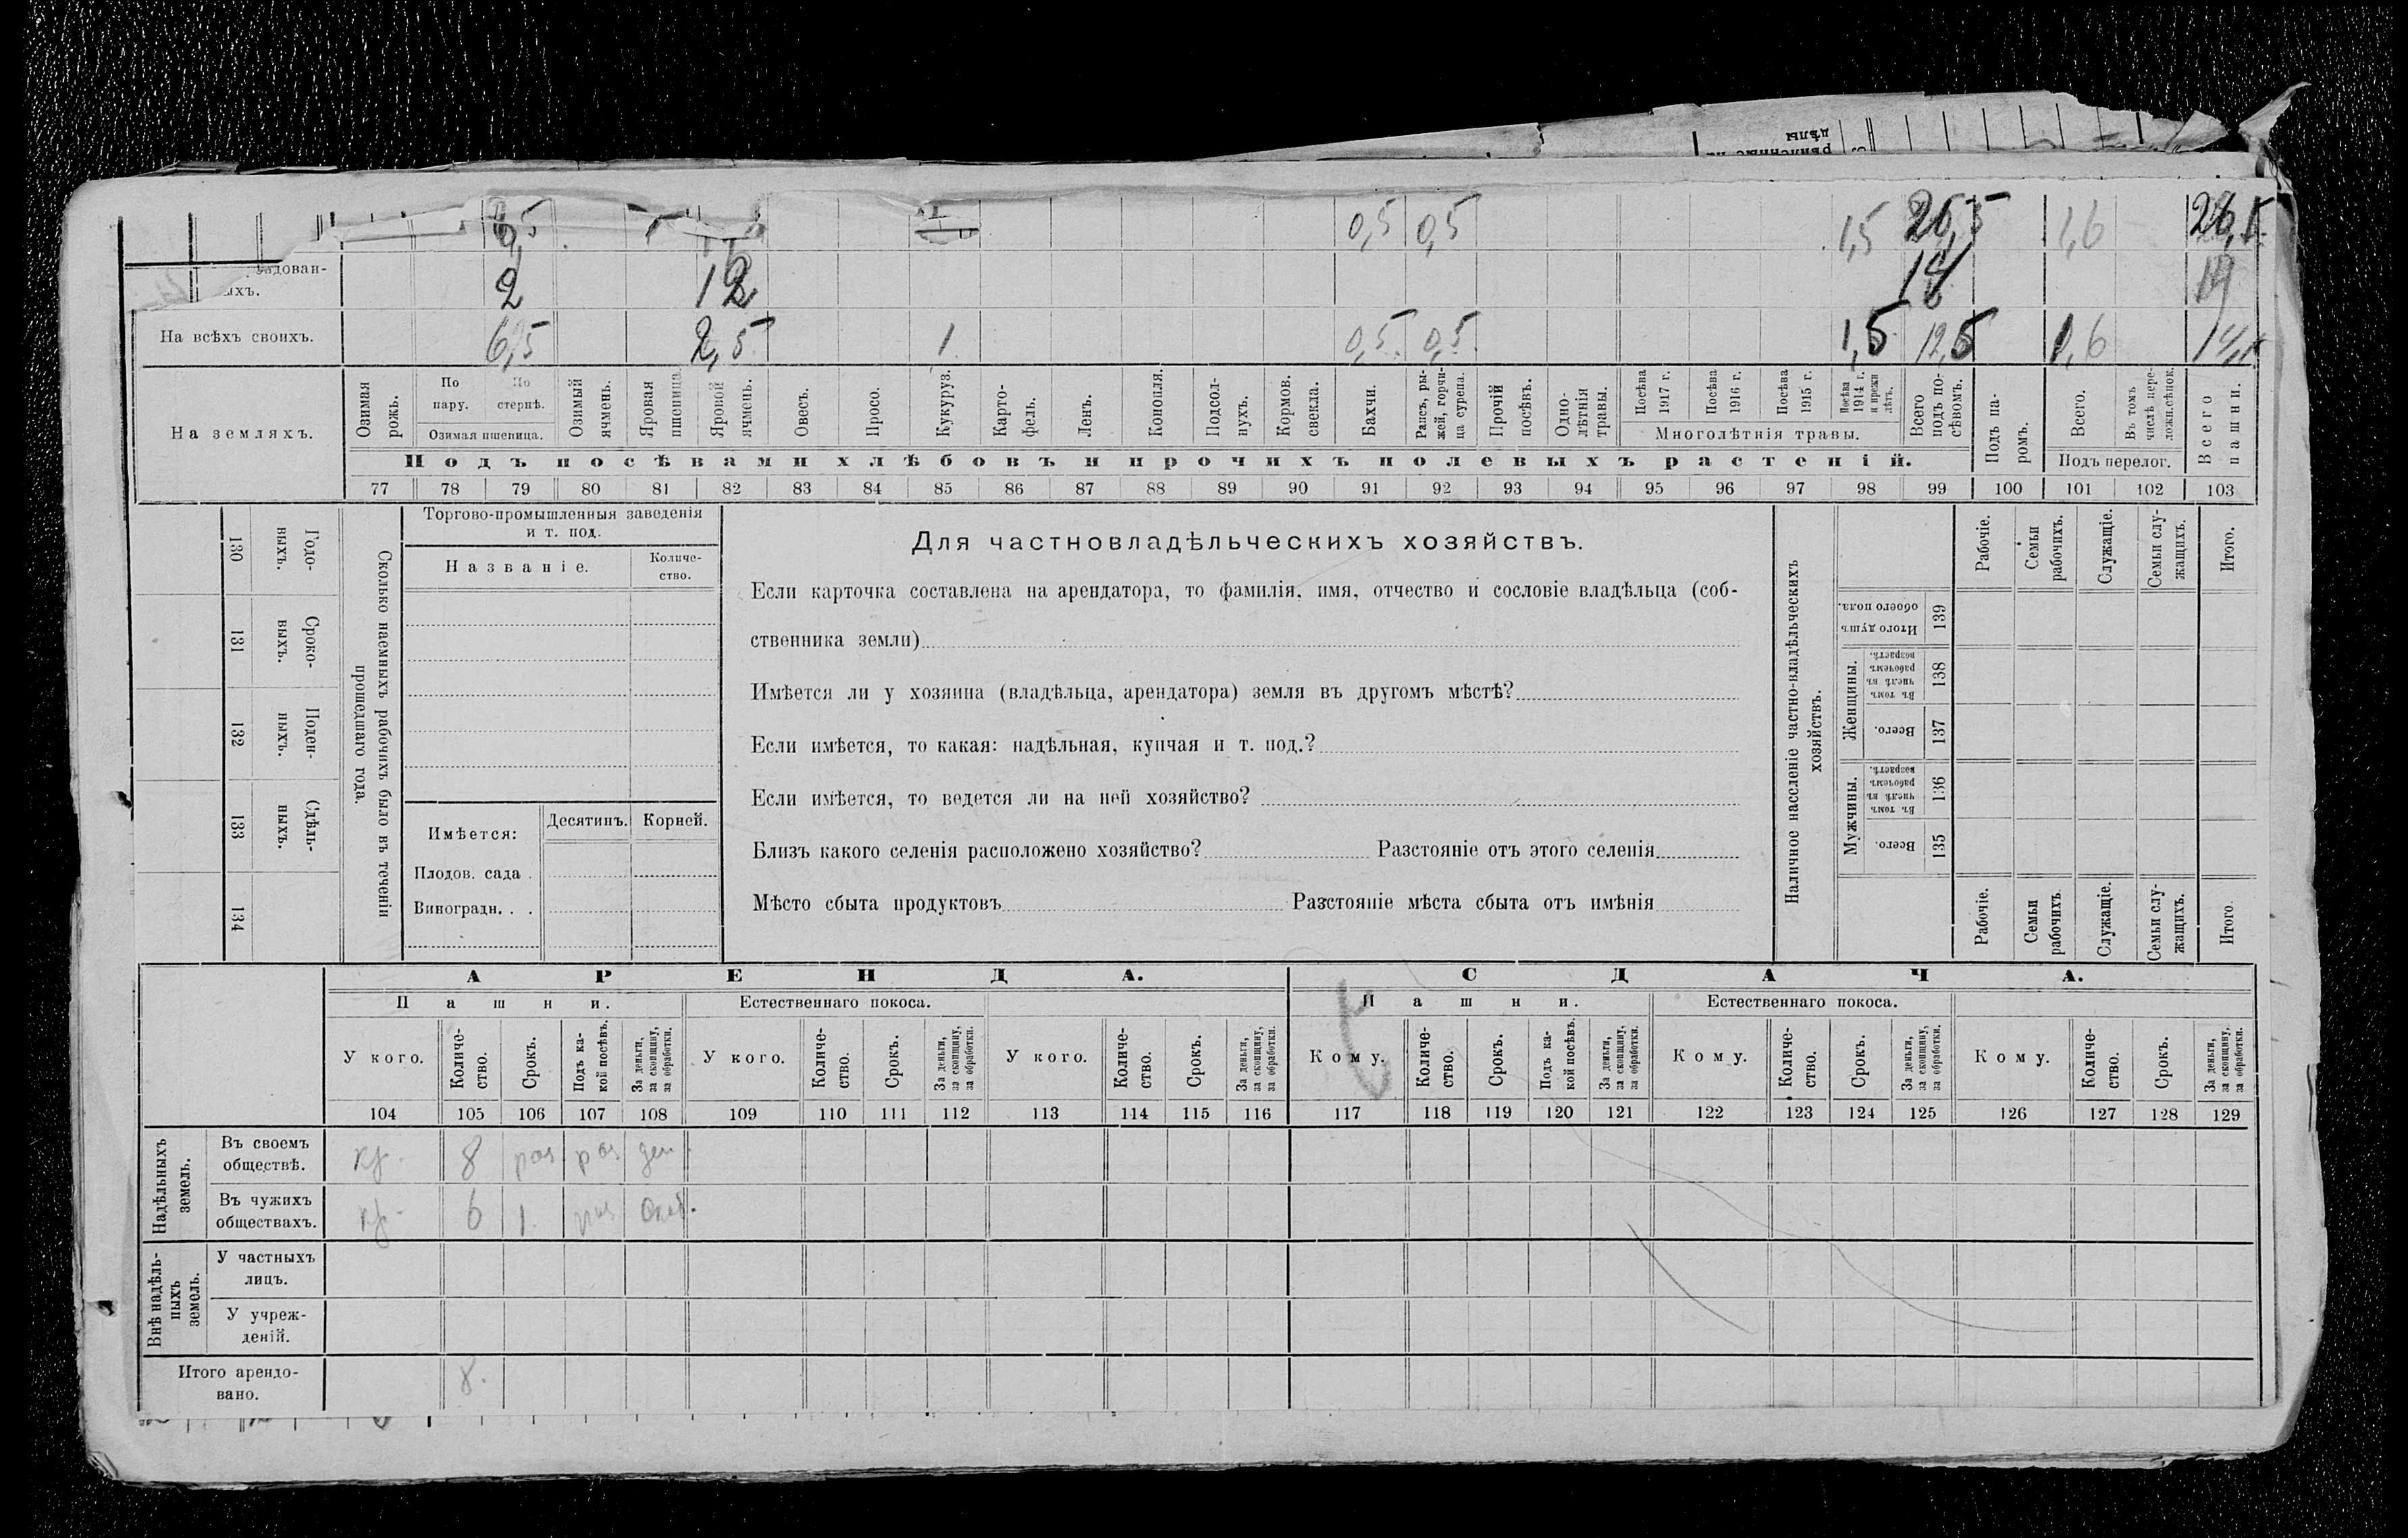 дѣлы
6,5 0,5 0,5 1,5 26,5 1,6 26,1
ыхъ. 2 12 14
На всѣхъ своихъ. 6,5 2,5 1 0,5 0,5 1,5 12,5 1,6
На земляхъ.
Озимая рожь.
По пару.
По стернѣ.
Озимая пшеница.
Озимый ячмень.
Яровая пшеница.
Яровой ячмень.
Овесъ.
Просо.
Кукуруз.
Карто-
фель.
Ленъ.
Конопля.
Подсол-
нухъ.
Кормов.
свекла.
Бахчи.
Рапсъ, ры-
жей, горчи-
ца сурепа.
Прочій
посѣвъ.
Одно-
лѣтнія
травы.
Посѣва
1917 г.
Посѣва
1916 г.
Посѣва
1915 г.
Посѣва
1914 г.
и прежн
лѣтъ.
Многолѣтнія травы.
Всего
подъ по-
сѣвомъ.
Подъ па-
ромъ.
Всего.
Въ томъ
числѣ пере-
ложн.сѣнок.
Подъ перелог.
Всего
пашни.
Подъ посѣвами хлѣбовъ и прочихъ полевыхъ растеній.
77 78 79 80 81 82 83 84 85 86 87 88 89 90 91 92 93 94 95 96 97 98 99 100 101 102 103
Годо-
ныхъ.
130
Сроко-
выхъ.
131
Поден-
ныхъ.
132
Сдѣль-
ныхъ.
133
134
Сколько наемныхъ рабочихъ было въ теченіи
прошедшаго года.
Торгово-промышленныя заведенія
и т. под.
Названіе.
Количе-
ство.
Имѣется:
Десятинъ.
Корней.
Плодов. сада .
Виноградн. . .
Для частновладѣльческихъ хозяйствъ.
Если карточка составлена на арендатора, то фамилія, имя, отчество и сословіе владѣльца (соб-
ственника земли)
Имѣется ли у хозяина (владѣльца, арендатора) земля въ другомъ мѣстѣ?
Если имѣется, то какая: надѣльная, купчая и т. под.?
Если имѣется, то ведется ли на ней хозяйство?
Близъ какого селенія расположено хозяйство? Разстояніе отъ этого селенія
Мѣсто сбыта продуктовъ Разстояніе мѣста сбыта отъ имѣнія
Наличное населеніе частно-владѣльческихъ
хозяйствъ.
Рабочіе.
Семьи
рабочихъ.
Служащіе.
Семьи слу-
жащихъ.
Итого.
Итого душъ
обоего пола.
139
Женщины.
Въ томъ
числѣ въ
рабочемъ
возрастѣ.
138
Всего.
137
Мужчины.
Въ томъ
числѣ въ
рабочемъ
возрастѣ.
136
Всего.
135
Рабочіе.
Семьи
рабочихъ
Служащіе.
Семьи слу-
жащихъ.
Итого.
АРЕНДА. СДАЧА.
Пашни. Естественнаго покоса. Пашни. Естественнаго покоса.
У кого.
Количе-
ство.
Срокъ.
Подъ ка-
кой посѣвъ.
За деньги,
за скопщину,
за обработки.
У кого.
Количе-
ство.
Срокъ.
За деньги,
за скопщину,
за обработки.
У кого.
Количе-
ство.
Срокъ.
За деньги,
за скопщину,
за обработки.
Кому.
Количе-
ство.
Срокъ.
Подъ ка-
кой посѣвъ.
За деньги,
за скопщину,
за обработки.
Кому.
Количе-
ство.
Срокъ.
За деньги,
за скопщину,
за обработки.
Кому.
Количе-
ство.
Срокъ.
За деньги,
за скопщину,
за обработки.
104 105 106 107 108 109 110 111 112 113 114 115 116 117 118 119 120 121 122 123 124 125 126 127 128 129
Надѣльныхъ
земель.
Въ своемъ
обществѣ.
кр. 8 раз раз ден.
Въ чужихъ
обществахъ.
кр. 6 1.
Внѣ надѣль-
ныхъ
земель.
У частныхъ
лицъ.
У учреж-
деній.
Итого арендо-
вано.
8.